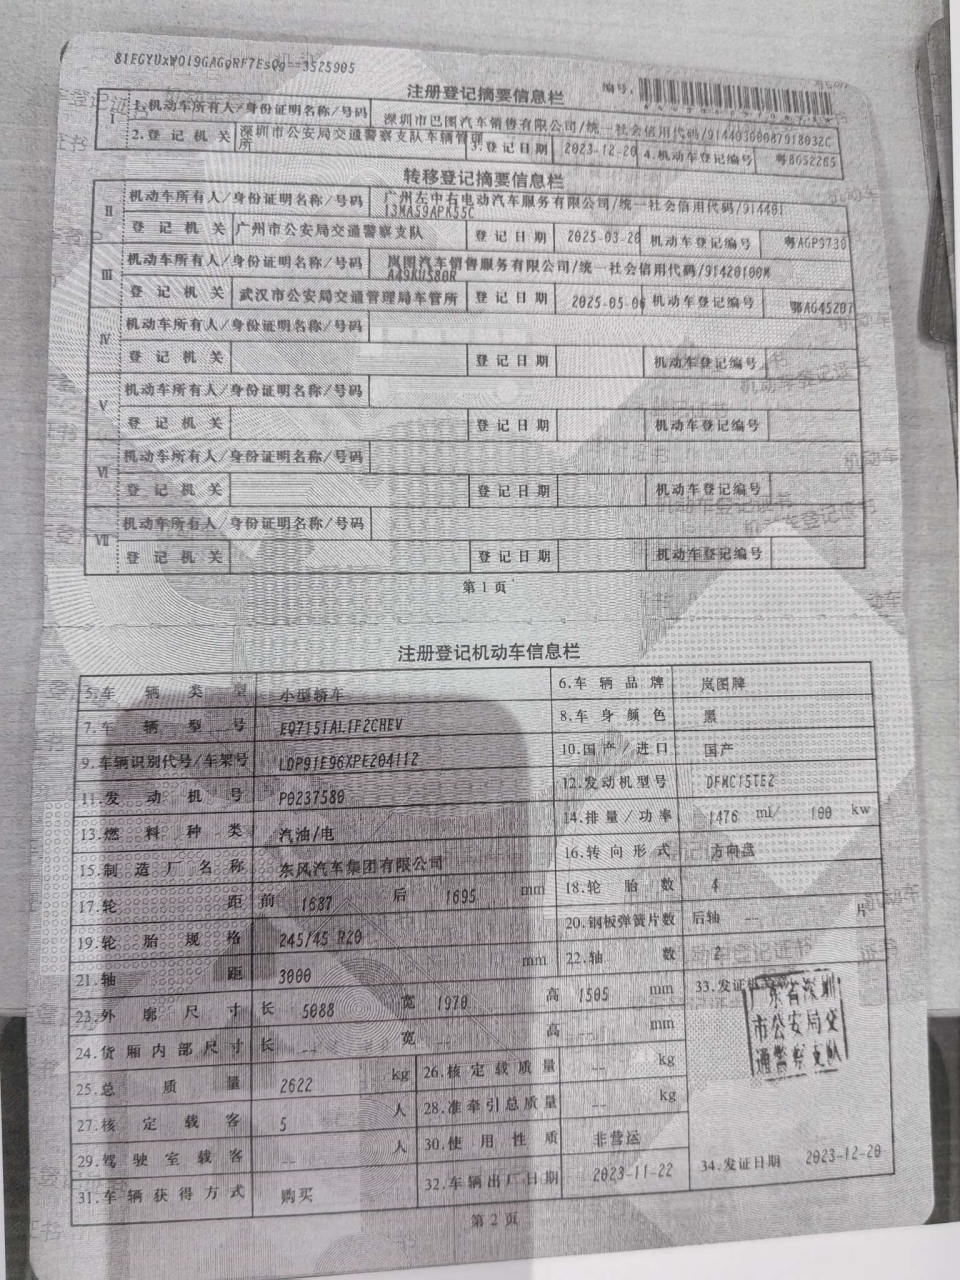 81EGYUxWO19GAGgRF7EsQg==3525905
编号:
注册登记摘要信息栏
I 1.机动车所有人/身份证明名称/号码 深圳市巴图汽车销售有限公司/统一社会信用代码/91440300087918032C
2.登记机关 深圳市公安局交通警察支队车辆管理所 3.登记日期 2023-12-20 4.机动车登记编号 粤BG52265
转移登记摘要信息栏
II 机动车所有人/身份证明名称/号码 广州左中右电动汽车服务有限公司/统一社会信用代码/914401
13MA59APK55C
登记机关 广州市公安局交通警察支队 登记日期 2025-03-20 机动车登记编号 粤AGP9730
III 机动车所有人/身份证明名称/号码 岚图汽车销售服务有限公司/统一社会信用代码/91420100M
A49KU580R
登记机关 武汉市公安局交通管理局车管所 登记日期 2025-05-06 机动车登记编号 鄂AG45207
IV 机动车所有人/身份证明名称/号码
登记机关 登记日期 机动车登记编号
V 机动车所有人/身份证明名称/号码
登记机关 登记日期 机动车登记编号
VI 机动车所有人/身份证明名称/号码
登记机关 登记日期 机动车登记编号
VII 机动车所有人/身份证明名称/号码
登记机关 登记日期 机动车登记编号
第1页
注册登记机动车信息栏
5.车辆类型 小型轿车 6.车辆品牌 岚图牌
7.车辆型号 EQ7151AL1F2CHEV 8.车身颜色 黑
9.车辆识别代号/车架号 LDP91E96XPE204112 10.国产/进口 国产
11.发动机号 P0237580 12.发动机型号 DFMC15TE2
13.燃料种类 汽油/电 14.排量/功率 1476 ml/ 100 kw
15.制造厂名称 东风汽车集团有限公司 16.转向形式 方向盘
17.轮距 前 1687 后 1695 mm 18.轮胎数 4
19.轮胎规格 245/45 R20 20.钢板弹簧片数 后轴 -- 片
21.轴距 3000 mm 22.轴数 2
23.外廓尺寸 长 5088 宽 1970 高 1505 mm 33.发证机关
24.货厢内部尺寸 长 -- 宽 -- 高 -- mm
广东省深圳
市公安局交
通警察支队
25.总质量 2622 kg 26.核定载质量 -- kg
27.核定载客 5 人 28.准牵引总质量 -- kg
29.驾驶室载客 -- 人 30.使用性质 非营运
31.车辆获得方式 购买 32.车辆出厂日期 2023-11-22 34.发证日期 2023-12-20
第2页